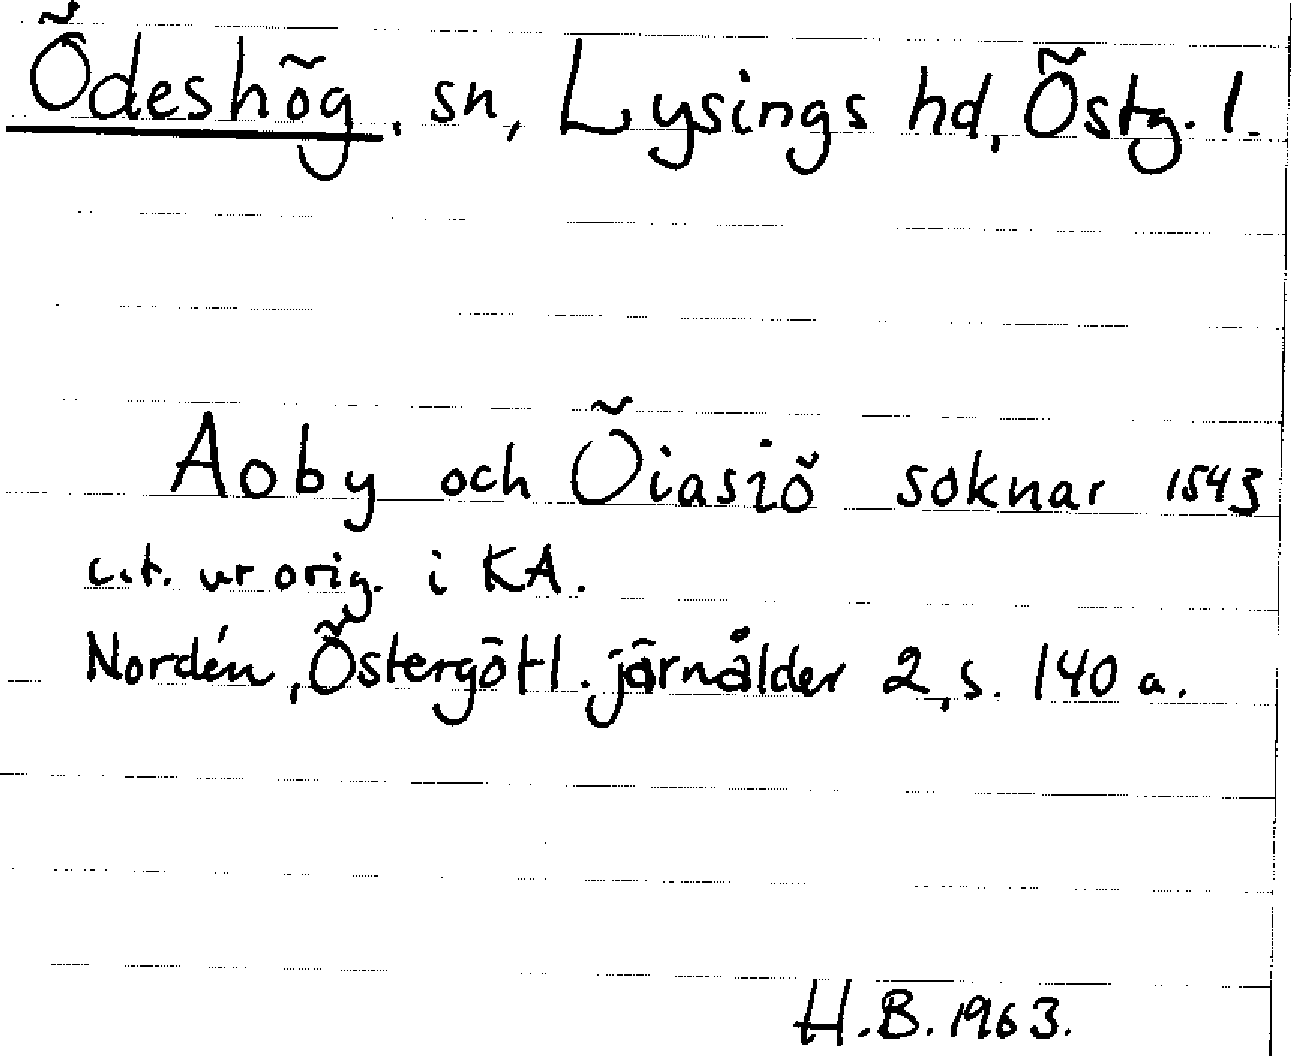 Ödeshög, sn, Lysings hd, Östg. l.
Aoby och Öiasiö soknar 1543
cit. ur orig. i KA.
Nordén, Östergötl. järnålder 2, s. 140 a.
H.B. 1963.